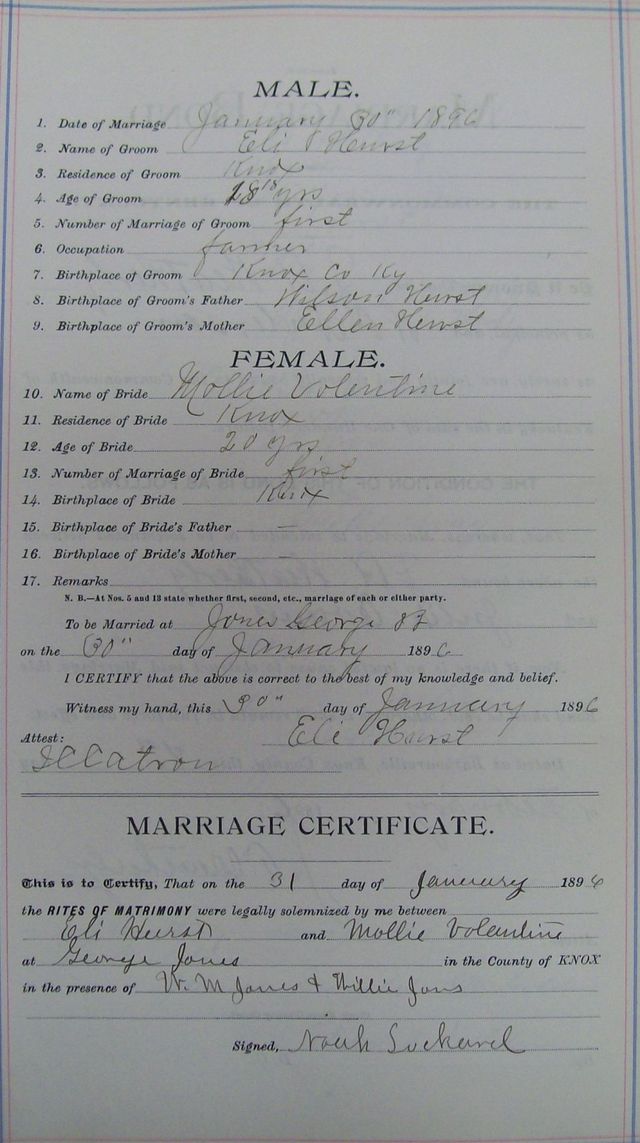 MALE.
1. Date of Marriage January 30" 1896
2. Name of Groom Eli Hurst
3. Residence of Groom Knox
4. Age of Groom 18 yrs
5. Number of Marriage of Groom first
6. Occupation farmer
7. Birthplace of Groom Knox Co Ky
8. Birthplace of Groom's Father Wilson Hurst
9. Birthplace of Groom's Mother Ellen Hurst
FEMALE.
10. Name of Bride Mollie Volentine
11. Residence of Bride Knox
12. Age of Bride 20 yrs
13. Number of Marriage of Bride first
14. Birthplace of Bride Knox
15. Birthplace of Bride's Father —
16. Birthplace of Bride's Mother —
17. Remarks
N. B.—At Nos. 5 and 13 state whether first, second, etc., marriage of each or either party.
To be Married at Jones George
on the 30" day of January 1896
I CERTIFY that the above is correct to the best of my knowledge and belief.
Witness my hand, this 30" day of January 1896
Eli Hurst
Attest:
Catron
MARRIAGE CERTIFICATE.
This is to Certify, That on the 31 day of January 1896
the RITES OF MATRIMONY were legally solemnized by me between
Eli Hurst and Mollie Volentine
at George Jones in the County of KNOX
in the presence of W. M Jones & Willie Jons
Signed, Noah